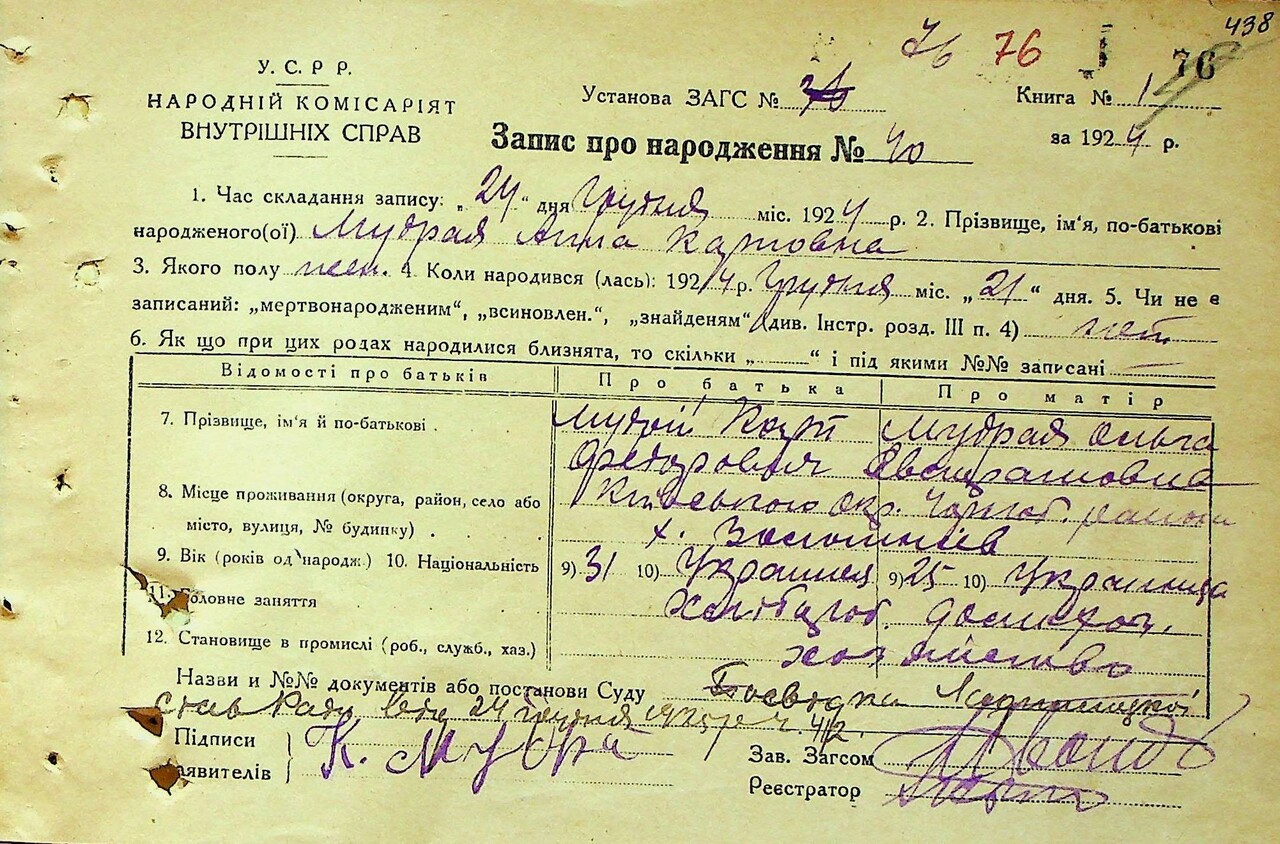 438
76 76 76
У. С. Р Р.
НАРОДНІЙ КОМІСАРІЯТ
ВНУТРІШНІХ СПРАВ
Установа ЗАГС №
Книга № 1
Запис про народження № 40
за 1924 р.
1. Час складання запису: „24" дня Грудня міс. 1924 р. 2. Прізвище, ім'я, по-батькові
народженого(ої) Мудрая Анна Карповна
3. Якого полу жен. 4. Коли народився (лась): 1924 р. Грудня міс. „21" дня. 5. Чи не є
записаний: „мертвонародженим", „всиновлен.", „знайденям" (див. Інстр. розд. III п. 4) нет
6. Як що при цих родах народилися близнята, то скільки „ " і під якими №№ записані
Відомості про батьків Про батька Про матір
7. Прізвище, ім'я й по-батькові . Мудрій Карп Мудрая Ольга
Федорович
8. Місце проживання (округа, район, село або Київського окр. района
місто, вулиця, № будинку) . . . х.
9. Вік (років од народж.) 10. Національність 9) 31 10) Украинец 9) 25 10) Украинка
11. Головне заняття Хлібороб. домашн.
12. Становище в промислі (роб., служб., хаз.) хозяйство
Назви и №№ документів або постанови Суду Посвідка
24 грудня
Підписи
заявителів } К. Мудрий
Зав. Загсом
Реєстратор